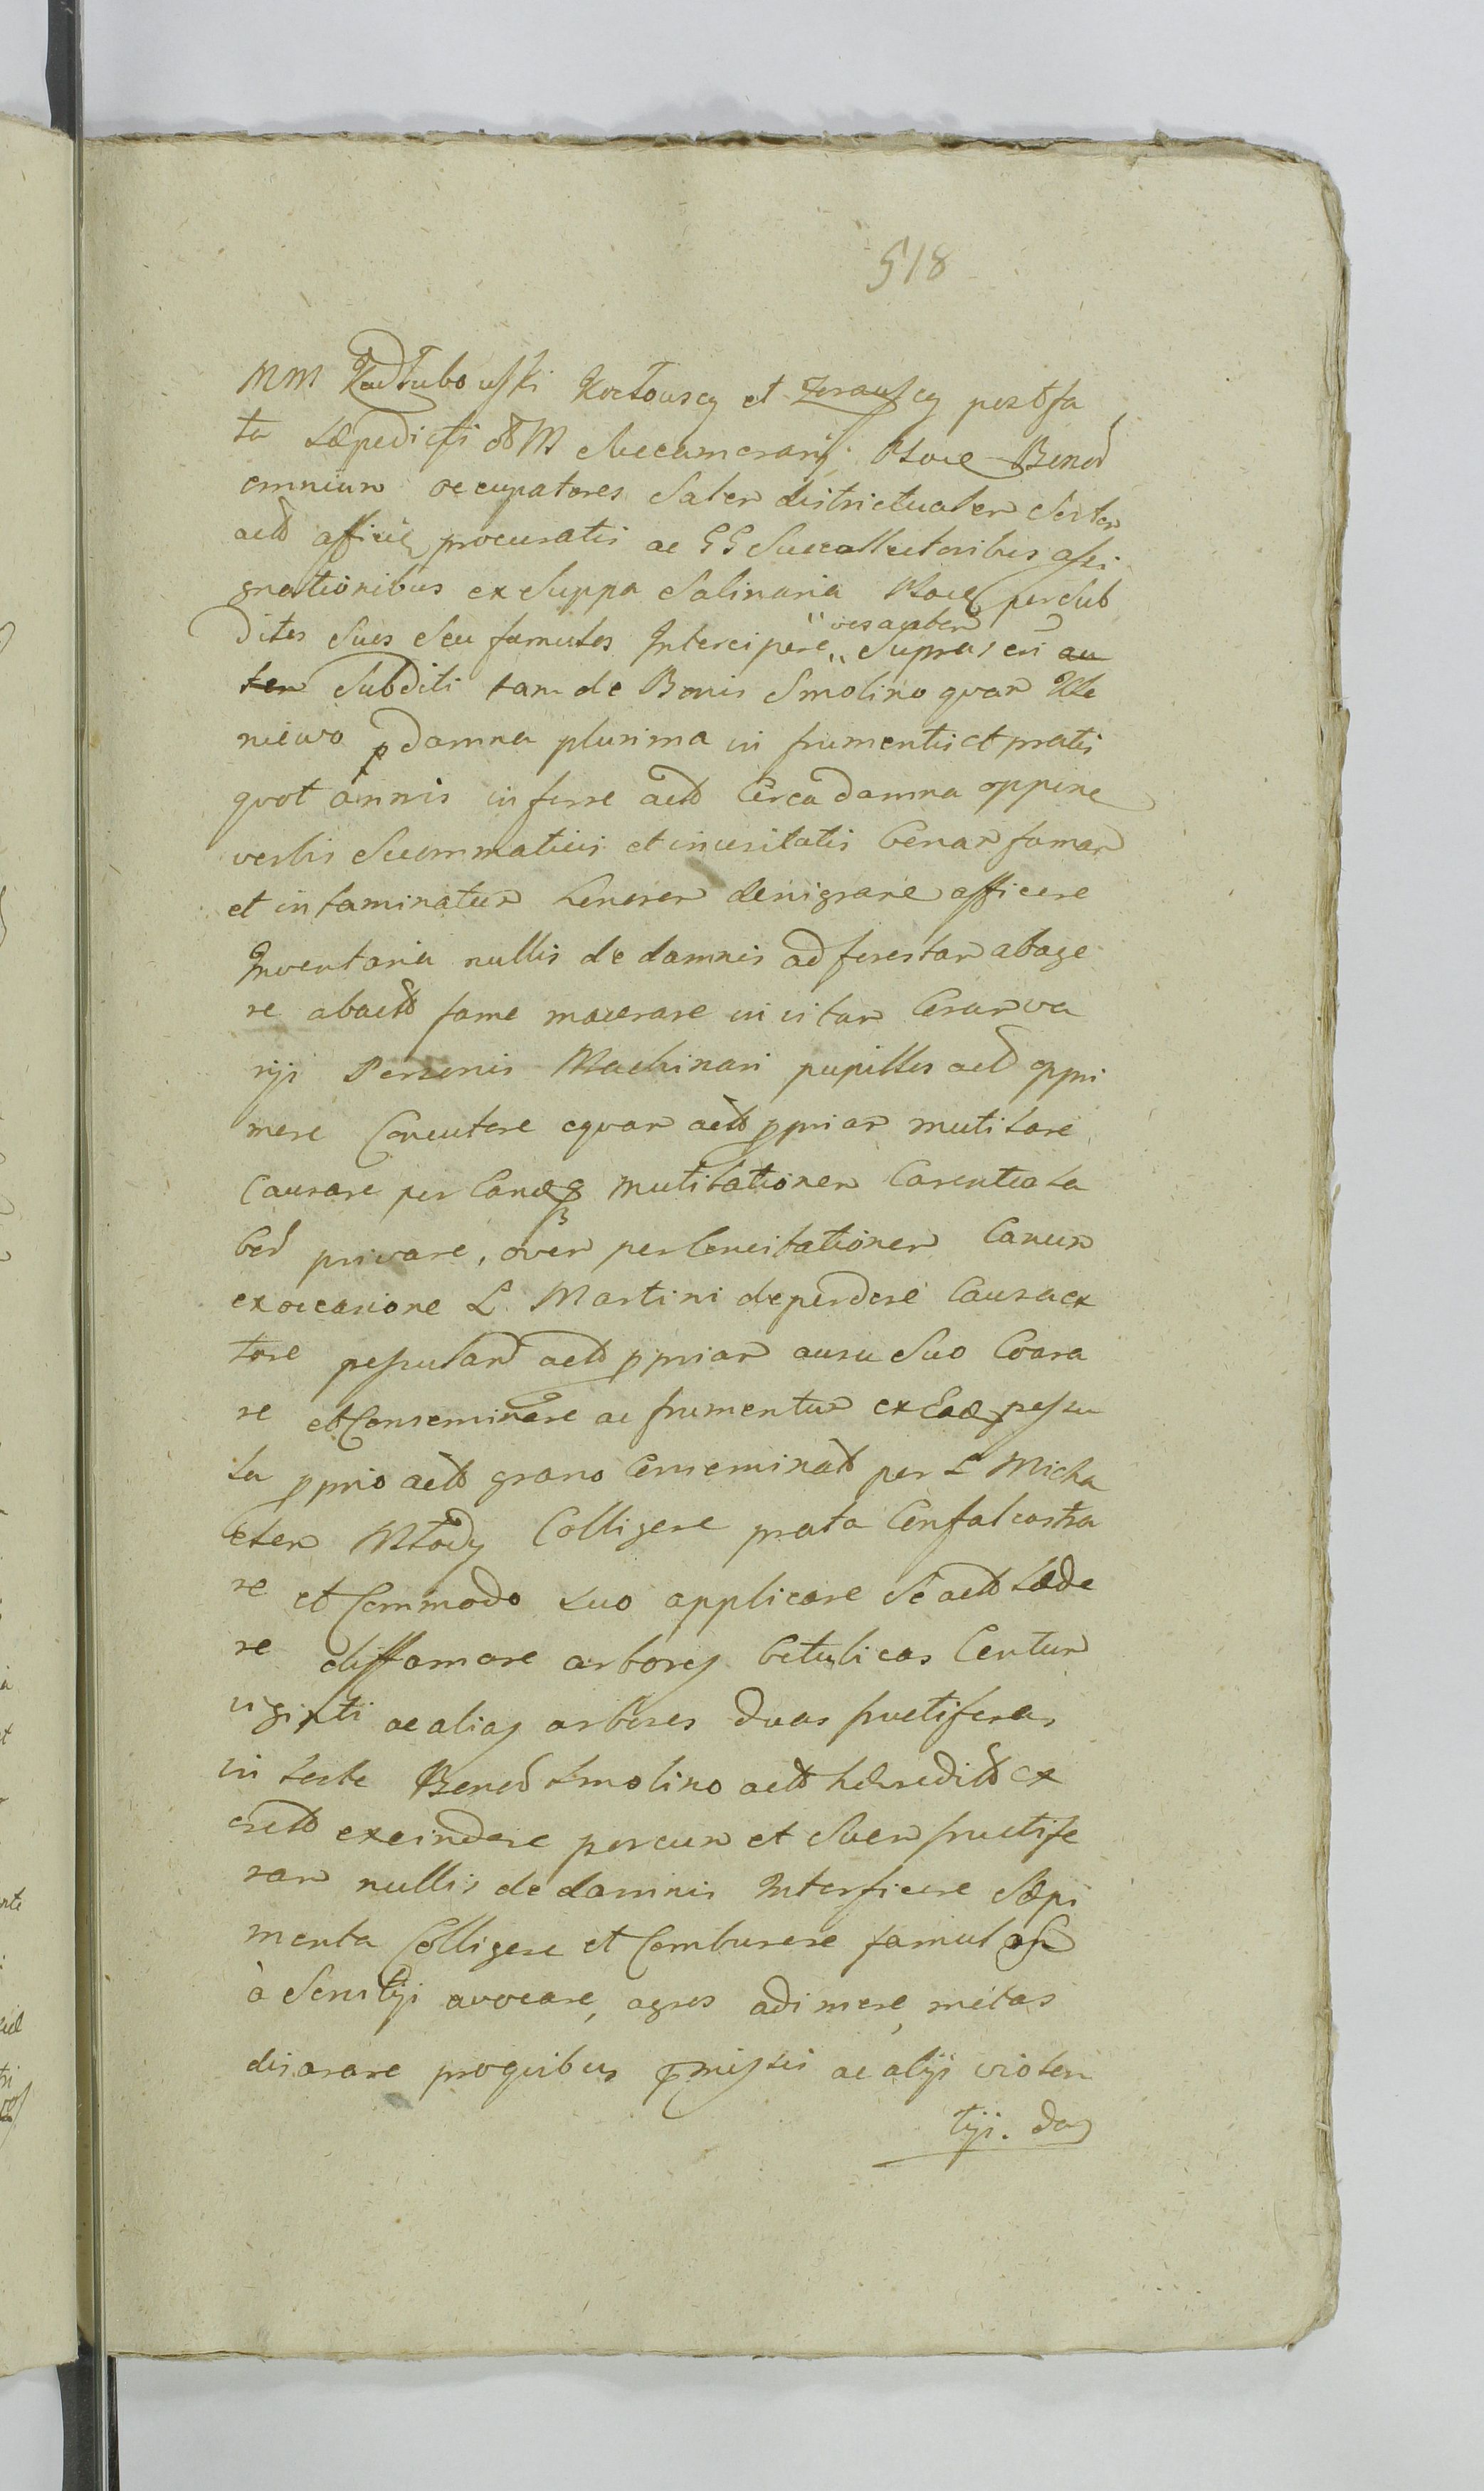 518
MM Kadłubowski Kociowscy et Zerawscy postfa
ta sæpedicti M Succamerarij Bonoꝝ
omnium occupatores Salem districtualem
actō officiis procuratis ac GG Succollectoribus assi
gnationibus ex Suppa Salinaria per sub
ditos suos seu famulos Intercipere vos autem Supra eri au
tem Subditi tam de Bonis Smolino quam
niewo damna plurima in frumentis et pratis
quot annis inferre actō Circa damna oppinē
verbis Scommaticis et inusitatis bonam famam
et intaminatum honorem denigrare afficere
Inventaria nullis de damnis ad forestam abage
re abactō fame macerare in vitam Coram va
rijs Personis Machinari pupillos actō oppri
mere Concutere equam actō ppriam mutilare
Causare per Canes mutilationem
privare, ovem per Concitationem Canum
ex occasione L. Martini deperdere Causa ex
tore actō ppriam ausu suo Coara
re et Conseminare ac frumentum ex Eadem
la pprio actō grano Conseminatō per L Micha
elem Młody Colligere prata Confalcastra
re et Commodo suo applicare Se actō Læde
re diffamare arbores betulicas Centum
viginti ac alias arbores duas fructiferas
in sorte Bonoꝝ Smolino actō hæreditō ex
excindere porcum et Suem fructife
ram nullis de damnis Interficere Sæpi
menta Colligere et Comburere famulos
à Servitijs avocare, agros adimere, metas
disarare pro quibus pmissis ac alijs violen
tijs. da